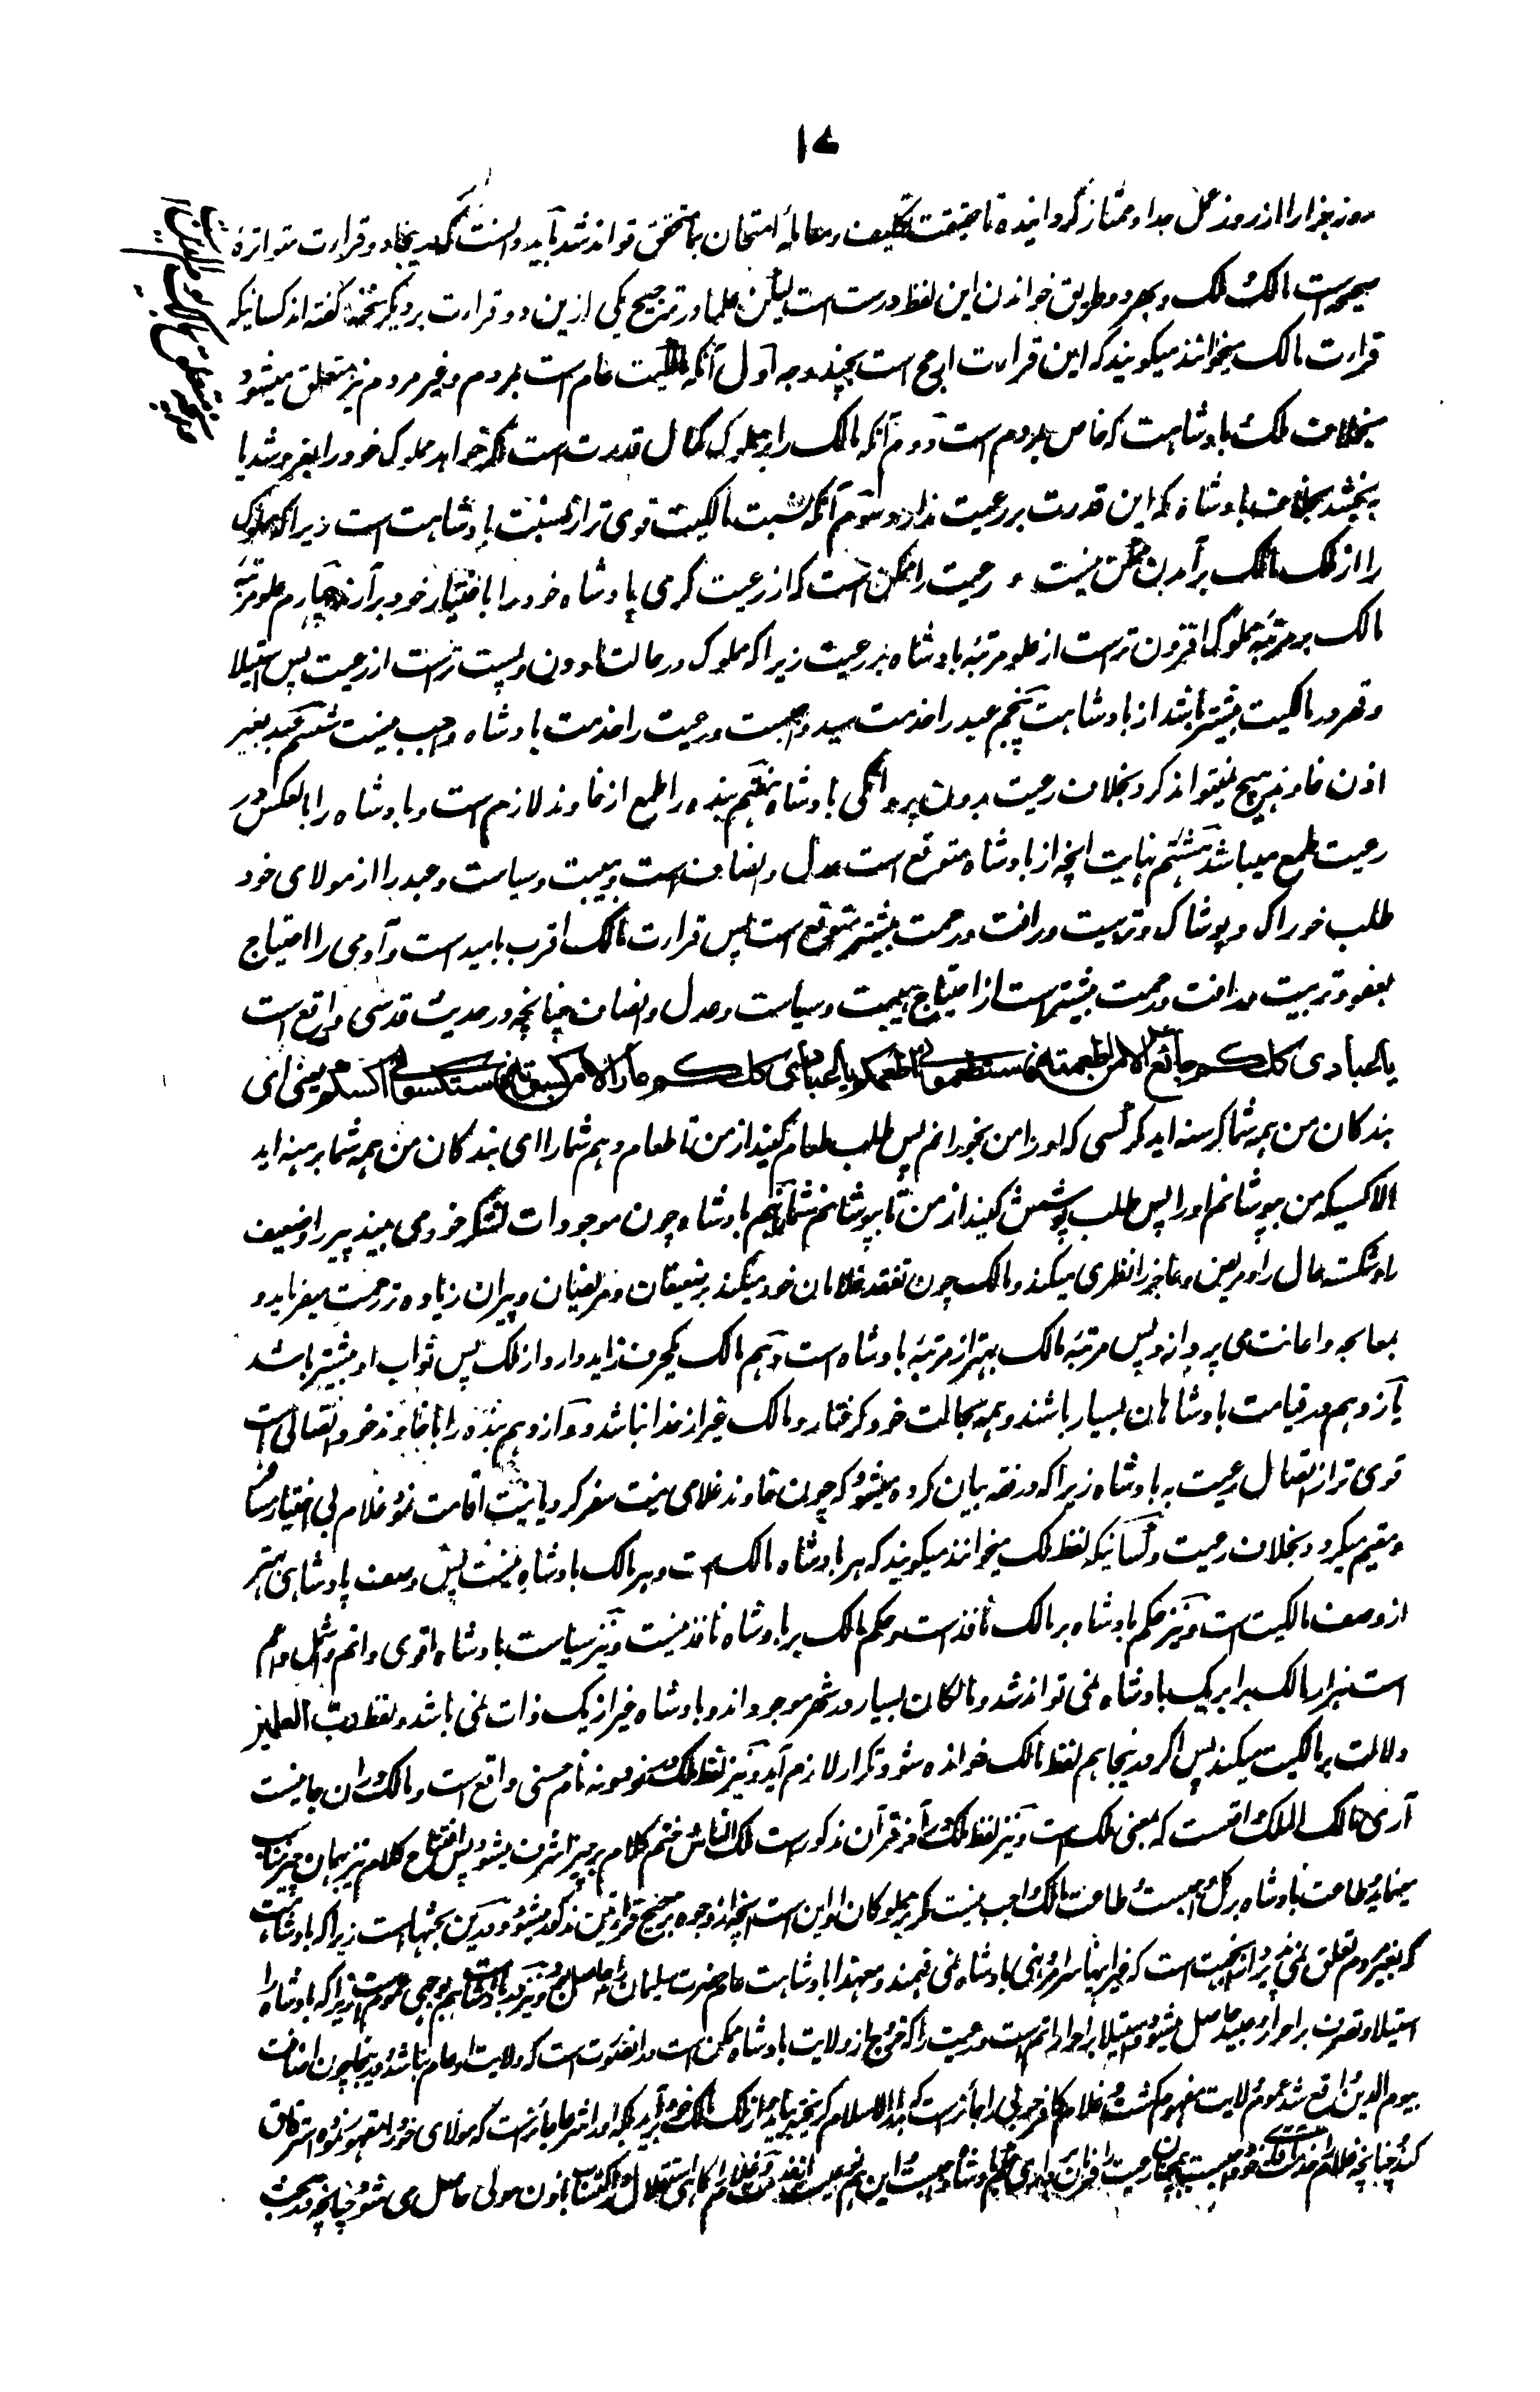 ۱۷
روز جزا را از روز عمل جدا و ممتاز گردانیده تا حقیقت تکلیف و معاملهٔ امتحان متحقق تواند شد باید دانست که درینجا دو قرارت متواتره
صحیحه است مالک و ملک و بهر دو طریق خواندن این لفظ درست است لیکن علما در ترجیح یکی ازین دو قرارت بر دیگر سخنها گفته اند کسانیکه
قرارت مالک میخوانند میگویند که این قرارت ارجح است بچند وجه اول آنکه مالکیت عام است بمردم و غیر مردم نیز متعلق میشود
بخلاف ملک بادشاهت که خاص بمردم است دوم آنکه مالک را بر مملوک کمال قدرت است اگر خواهد مملوک خود را بفروشد یا
ببخشد بخلاف بادشاه که این قدرت بر رعیت ندارد سوم آنکه نسبت مالکیت قوی تر از نسبت بادشاهت است زیرا که مملوک
را از ملک مالک برآمدن ممکن نیست و رعیت را ممکن است که از رعیت گری پادشاه خود را باختیار خود برآرند چهارم علو مرتبهٔ
مالک بر مرتبهٔ مملوک افزون ترست از علو مرتبهٔ بادشاه بر رعیت زیرا که مملوک در حالت ادون و پست ترست از رعیت پس استیلا
و قهر در مالکیت بیشتر باشد از بادشاهت پنجم عبد را خدمت سید واجبست و رعیت را خدمت بادشاه واجب نیست ششم عبد بغیر
اذن خاوند هیچ نمیتواند کرد بخلاف رعیت بدون پروانگی بادشاه هفتم بنده را طمع از خاوند لازم است و بادشاه را بالعکس در
رعیت طمع میباشد هشتم نهایت انچه از بادشاه متوقع است عدل و انصاف است و هیبت و سیاست و عبد را از مولای خود
طلب خوراک و پوشاک و تربیت و رافت و رحمت بیشتر متوقع است پس قرارت مالک اقرب بامید است و آدمی را احتیاج
بعفو و تربیت و رافت و رحمت بیشتر است از احتیاج هیبت و سیاست و عدل و انصاف چنانچه در حدیث قدسی واقع است
یا عبادی کلکم جائع الا من اطعمته فاستطعمونی اطعمکم یا عبادی کلکم عار الا من کسوته فاستکسونی اکسکم یعنی ای
بندگان من همه شما گرسنه اید مگر کسی که او را من بخورانم پس طلب طعام کنید از من تا طعام دهم شما را ای بندگان من همه شما برهنه اید
الا کسیکه من بپوشانم او را پس طلب پوشش کنید از من تا بپوشانم شما را نهم بادشاه چون موجودات لشکر خود می بیند پیر را و ضعیف
را و شکسته حال را و مریض و عاجز را نظری میکند و مالک چون تفقد غلامان خود میکند بر ضعیفان و مریضان و پیران زیاده تر رحمت میفرماید و
بمعالجه و اعانت می پردازد پس مرتبهٔ مالک بهتر از مرتبهٔ بادشاه است دهم مالک یکحرف زاید دارد از ملک پس ثواب او بیشتر باشد
یازدهم در قیامت بادشاهان بسیار باشند و همه بحالت خود گرفتار و مالک غیر از خدا نباشد دوازدهم بنده را با خاوند خود اتصالی است
قوی تر از اتصال رعیت به بادشاه زیرا که در فقه بیان کرده میشود که چون خاوند غلامی نیت سفر کرد یا نیت اقامت نمود غلام بی اختیار مسافر
و مقیم میگردد بخلاف رعیت و کسانیکه لفظ ملک میخوانند میگویند که هر بادشاه مالک است و هر مالک بادشاه نیست پس وصف پادشاهی بهتر
از وصف مالکیت است و نیز حکم بادشاه بر مالک نافذ است و حکم مالک بر بادشاه نافذ نیست و نیز سیاست بادشاه اقوی و اتم و اشمل و اعم
است هزار مالک برابر یک بادشاه نمی تواند شد و مالکان بسیار در شهر موجود اند و بادشاه غیر از یک ذات نمی باشد و لفظ رب العلمین
دلالت بر مالکیت میکند پس اگر درینجا هم لفظ مالک خوانده شود تکرار لازم آید و نیز لفظ ملک در نود و نه نام حسنی واقع است و مالک دران جا نیست
آری مالک الملک واقعست که بمعنی ملک است و نیز لفظ ملک در آخر قرآن مذکور است ملک الناس و ختم کلام بر چیز اشرف میشود پس افتتاح کلام نیز بهمان چیز مناسب
مینماید و طاعت بادشاه بر کل واجبست و طاعت مالک واجب نیست مگر بر مملوکان او این است انچه از وجوه ترجیح قرارتین مذکور میشود و درین بحثهاست زیرا که بادشاهت
که بغیر مردم تعلق نمی پذیرد ازانجهت است که غیر اینها سر امر و نهی بادشاه نمی فهمند و معهذا بادشاهت عام حضرت سلیمان را حاصل بود و نیز در بادشاهت هم بوجهی عموم است زیرا که بادشاه را
استیلا و تصرف بر احرار و عبید حاصل میشود و استیلا بر احرار اتم است و رعیت را که خروج از ولایت بادشاه ممکن است در انصورت است که ولایت او عام نباشد و درینجا چون اضافت
بیوم الدین واقع شد عموم ولایت مفهوم گشت و غلام کافر حربی را جائز است که بدارالاسلام گریخته بیاید و از ملک مالک خود برآید بلکه او را شرعا جائز است که مولای خود را مقهور نموده استرقاق
کند و چنانچه غلام را خدمت آقای خود واجبست همچنان رعیت را فرمان برداری حکم بادشاه واجبست و این هم نوعیست از خدمت و غلام را گاهی استقلال در اکتساب باذن مولی حاصل می شود چنانچه در بحث